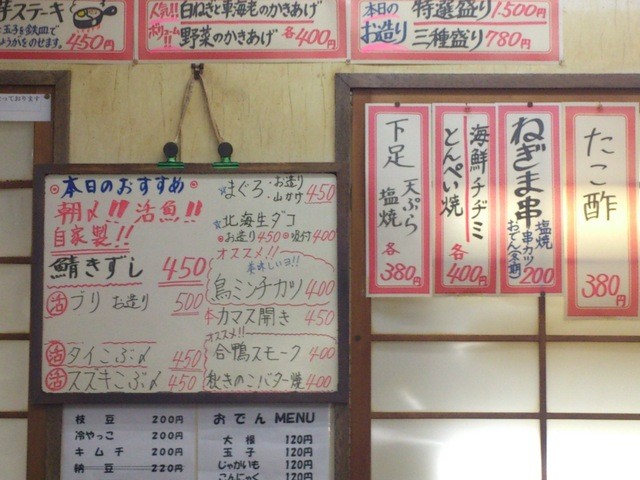 芋ステーキ
玉子を鉄皿で
450円
人気!! 白ねぎと車海老のかきあげ
ボリューム!! 野菜のかきあげ 各400円
本日のお造り 特選盛り1500円
三種盛り780円
本日のおすすめ
朝〆!! 活魚!!
自家製!!
鯖きずし 450
活 ブリ お造り 500
活 タイこぶ〆 450
活 スズキこぶ〆 450
まぐろ・お造り・山かけ 450
北海生ダコ
お造り450 吸付400
オススメ!!
美味しいヨ!!
鳥ミンチカツ 400
本カマス開き 450
オススメ!!
合鴨スモーク 400
秋きのこバター焼 400
下足 天ぷら 塩焼 各380円
海鮮チヂミ
とんぺい焼 各400円
ねぎま串 塩焼 串カツ おでん(冬期) 200
たこ酢 380円
枝豆 200円
冷やっこ 200円
キムチ 200円
納豆 220円
おでん MENU
大根 120円
玉子 120円
じゃがいも 120円
こんにゃく 120円